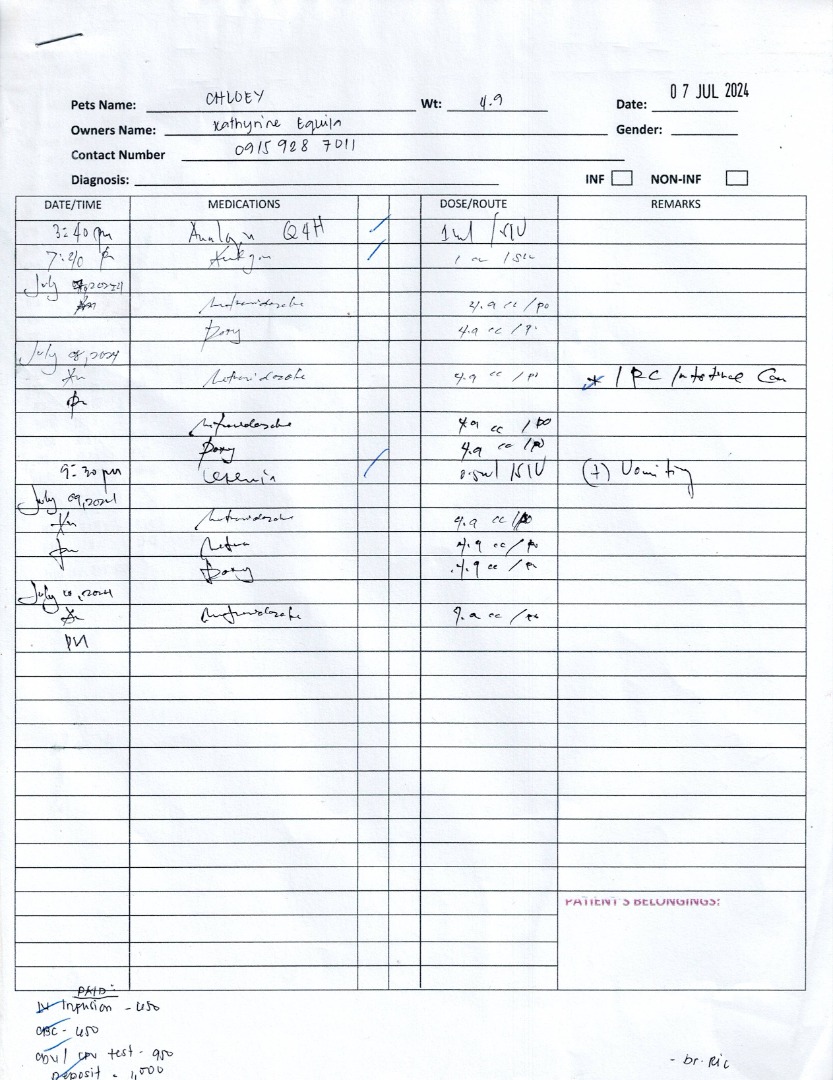 Pets Name: CHLOEY Wt: 4.9 Date: 07 JUL 2024
Owners Name: Kathyrine Equila Gender:
Contact Number 0915 928 7011
Diagnosis: INF NON-INF
DATE/TIME MEDICATIONS DOSE/ROUTE REMARKS
3:40 pm Analgin Q4H 1ml /SIV
7:40 p 1 cc /SIV
July 2024
4.9 cc /po
Doxy 4.9 cc /p
July 08, 2024
Am Metronidazole 4.9 cc /po * 1 RC Intestinal Can
pm
Metronidazole 4.9 cc /po
Doxy 4.9 cc /po
9:30 pm 0.5ml /SIV (+) Vomiting
July 09, 2024
Am Metronidazole 4.9 cc /po
pm Metro 4.9 cc /po
Doxy 4.9 cc /po
July 10, 2024
Am Metronidazole 4.9 cc /po
PM
PATIENT'S BELONGINGS:
PAID:
IV Infusion - 450
CBC - 450
CDV / CPV test - 950
Deposit - 1,000
- Dr. Ric